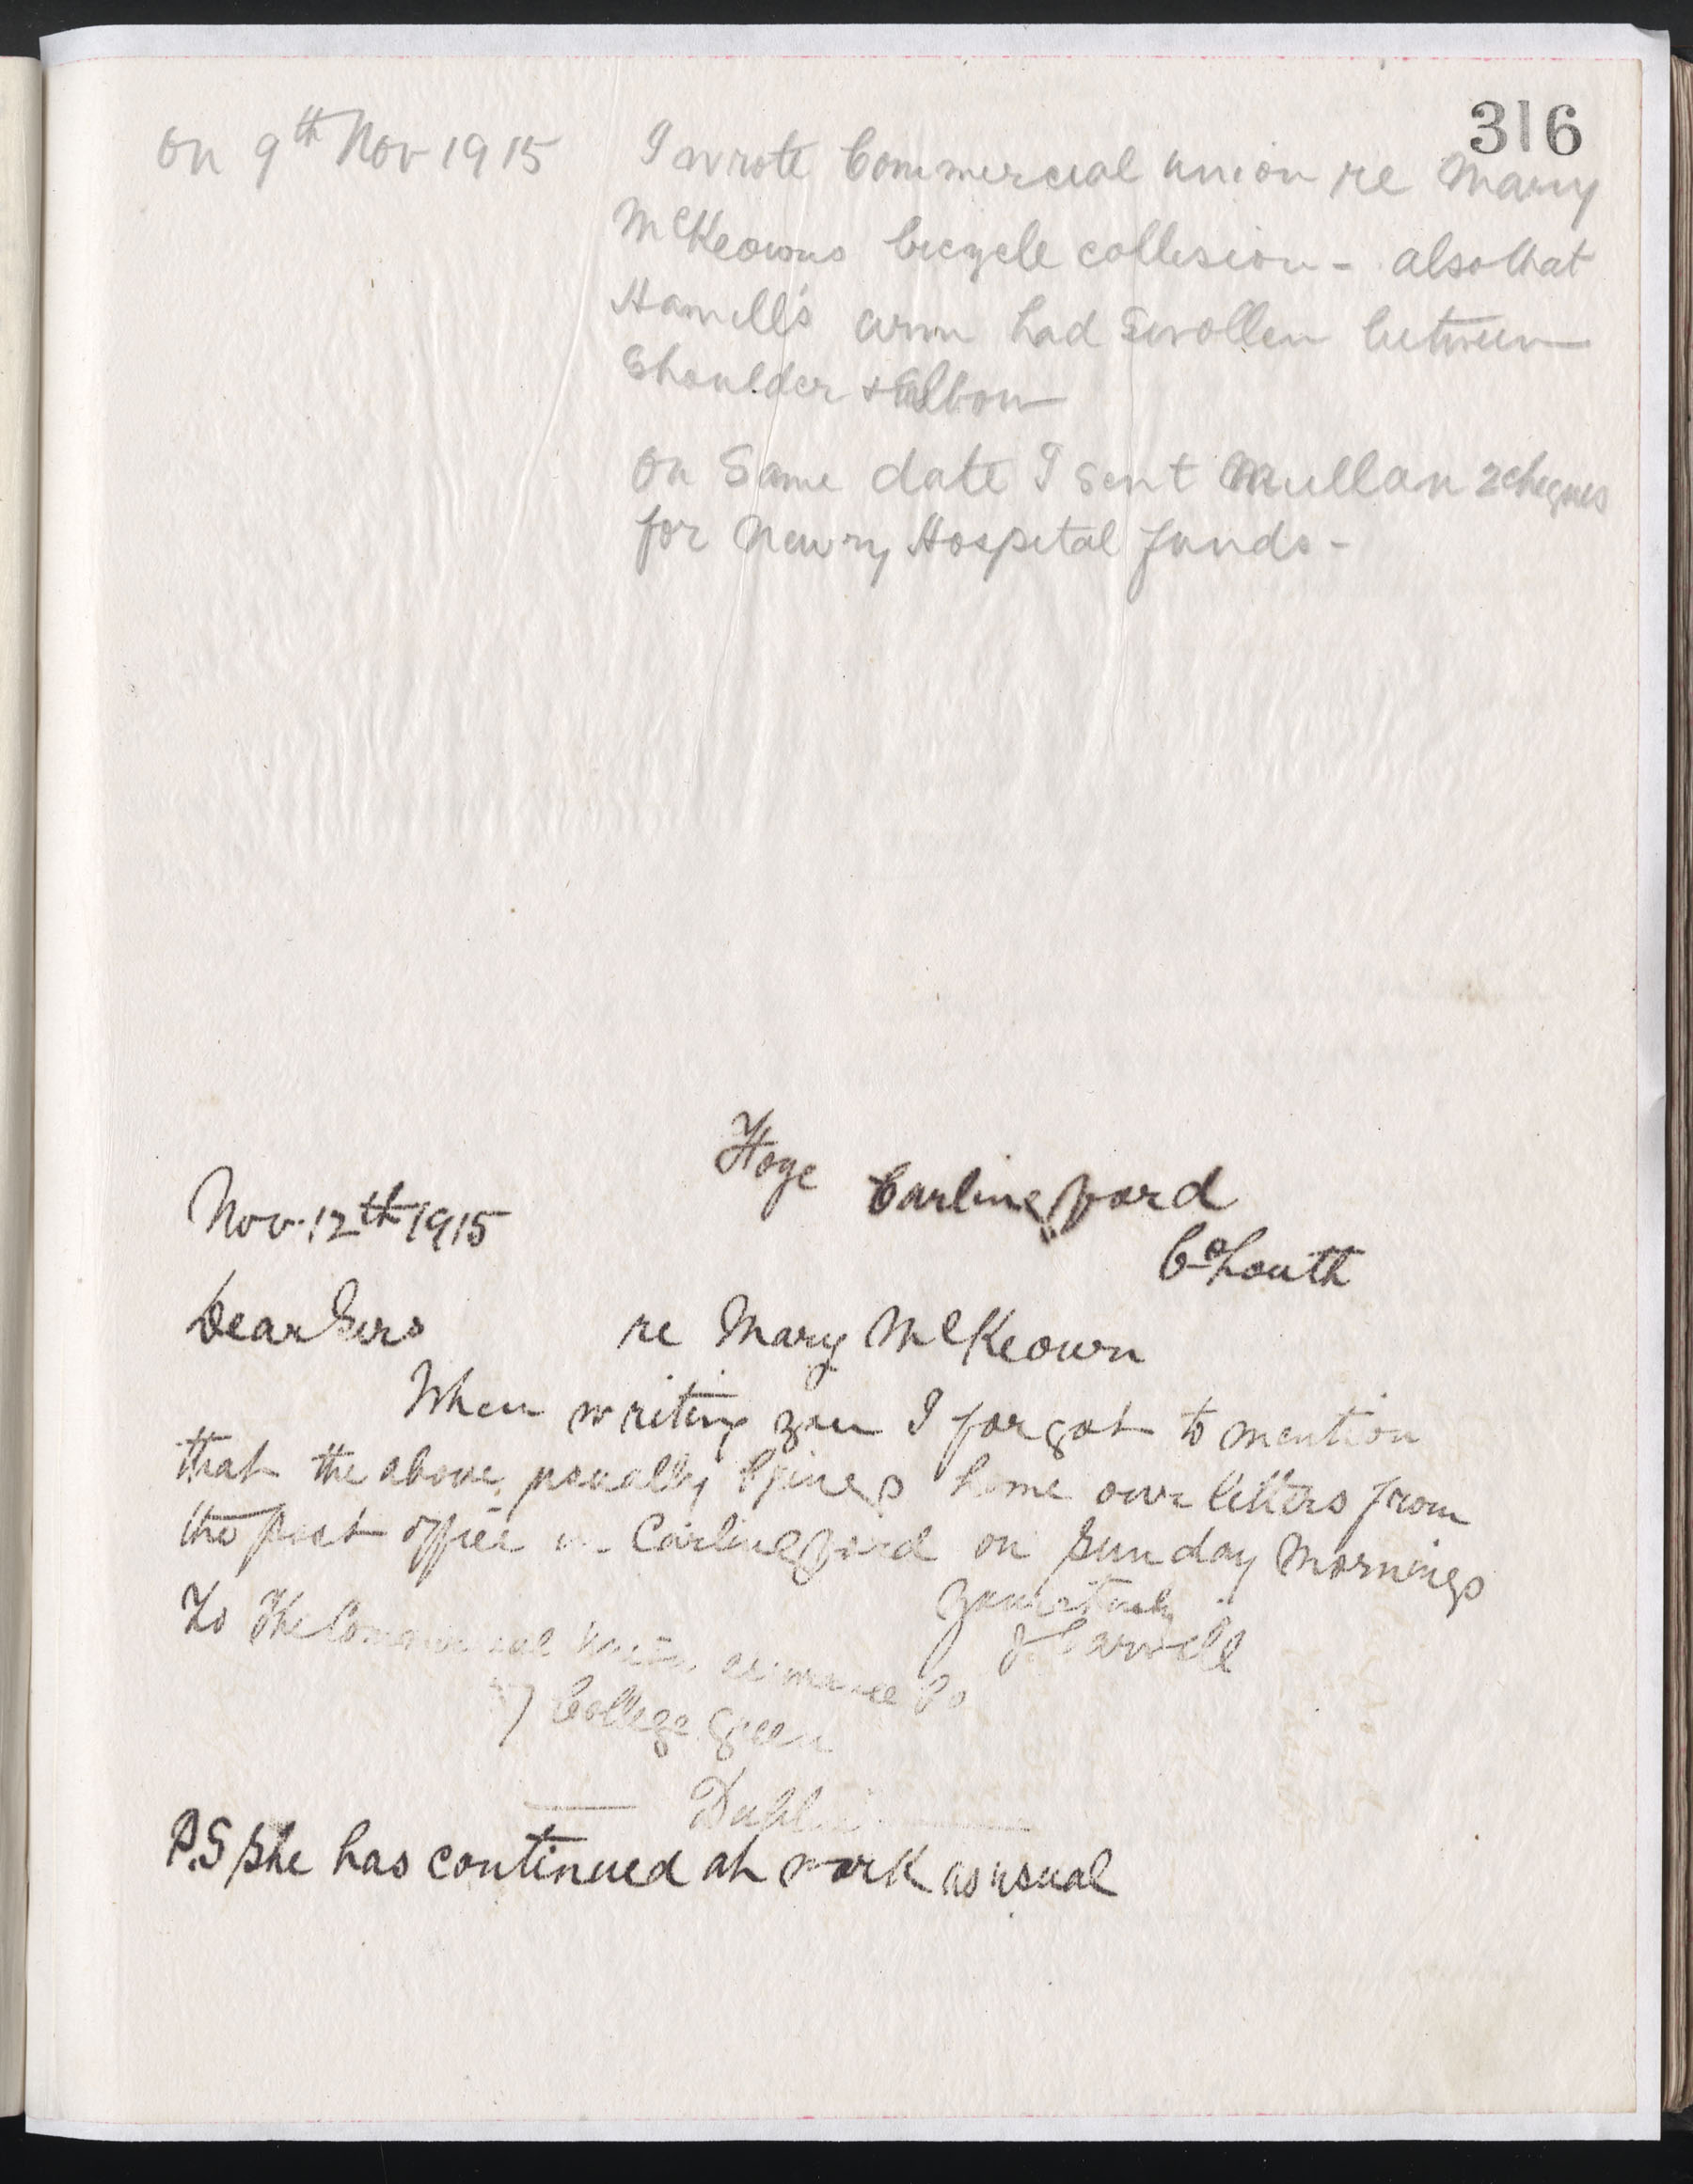 316
On 9th Nov 1915 I wrote Commercial Union re Mary
McKeowns bicycle collision - also that
Hamill's arm had swollen between
Shoulder & Elbow
On Same date I sent Mullan 2 cheques
for Newry Hospital funds -
Hoge Carlingford
Nov. 12th 1915
Co Louth
Dear Sirs re Mary McKeown
When writing you I forgot to mention
that the above usually brings home our letters from
the post office in Carlingford on Sunday mornings
Yours truly
To The Commercial Union assurance Co
J Carvill
37 College Green
Dublin
P.S She has continued at work as usual